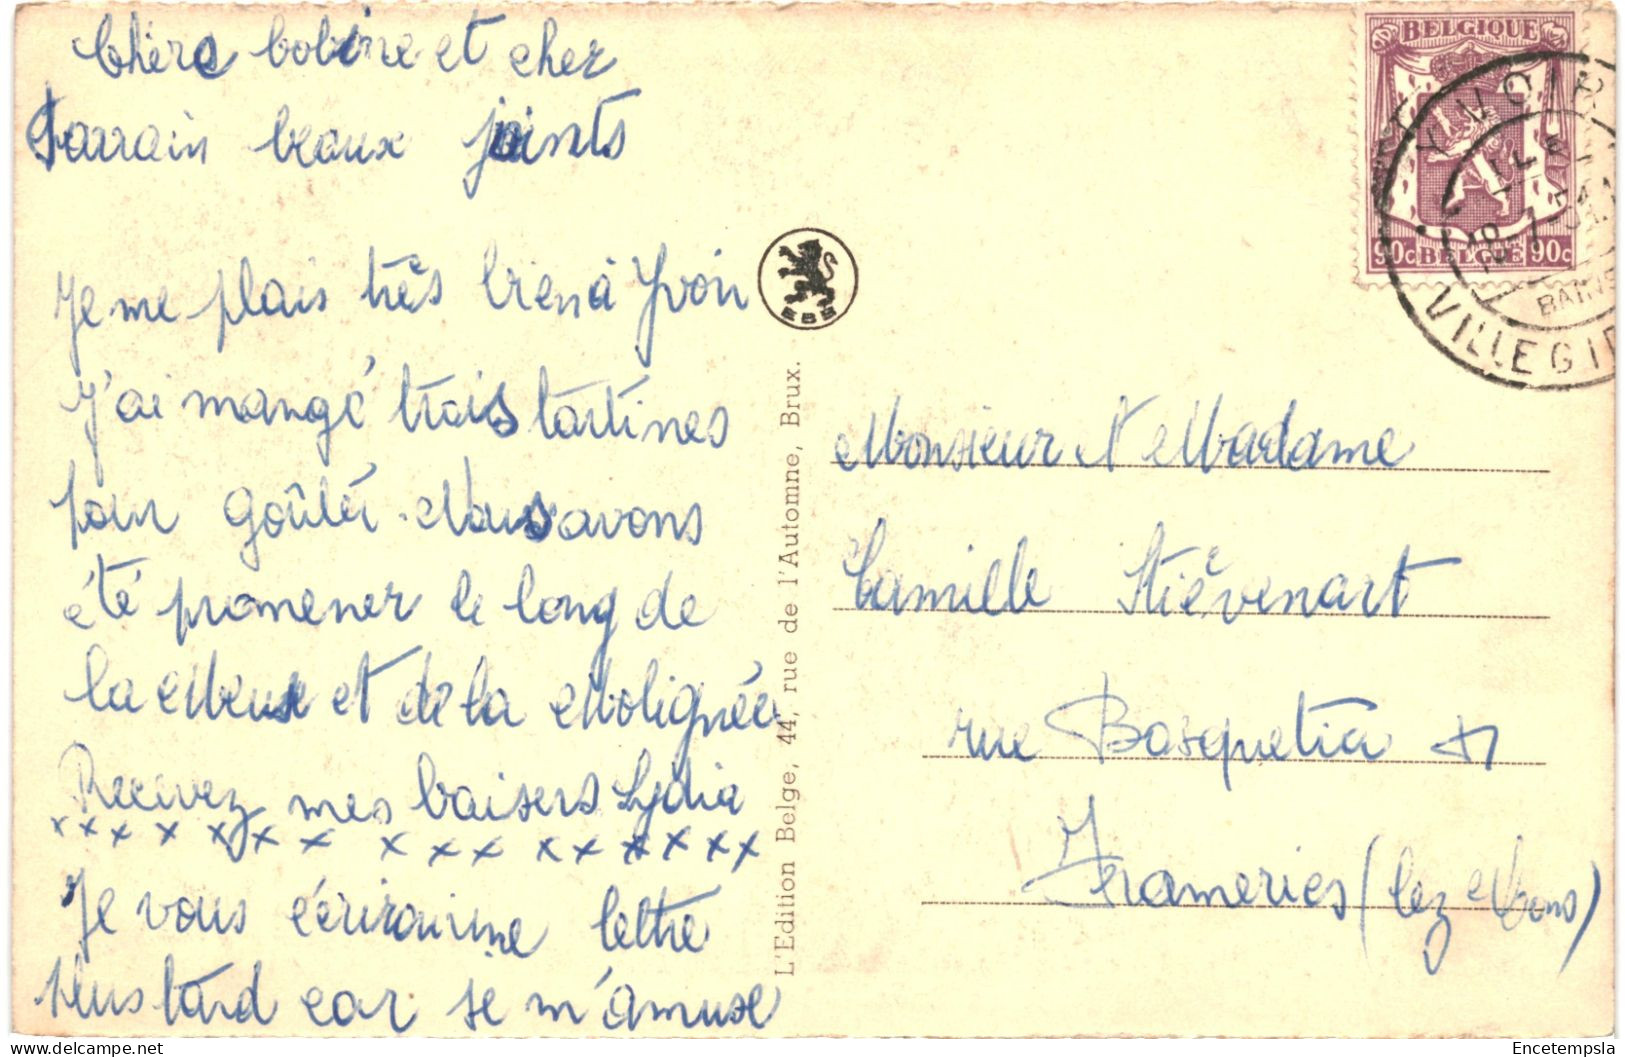 Chère bobine et cher
Parrain beaux joints
Je me plais très bien à Yvoir
J'ai mangé trois tartines
pour goûter. Nous avons
été promener le long de
la Meuse et de la Molignée
Recevez mes baisers Lydia
x x x x x x x x x x x x x x x x
Je vous écrirai une lettre
plus tard car je m'amuse
EBB
L'Edition Belge, 44, rue de l'Automne, Brux.
BELGIQUE
90c BELGIË 90c
YVOIR
VILLEGI
Monsieur et Madame
Camille Stiévenart
rue Bosquetia
Frameries (lez Mons)
Encetempsla